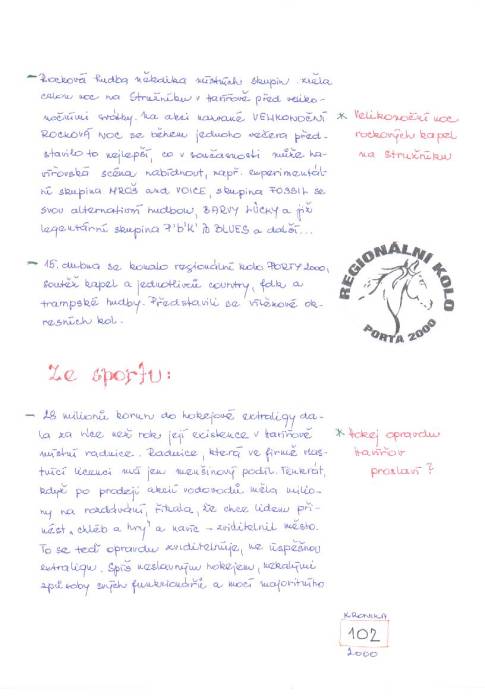 – Rocková hudba několika místních skupin zněla
celou noc na Stružníku v Havířově před veliko-
nočními svátky. Na akci nazvané VELIKONOČNÍ
ROCKOVÁ NOC se během jednoho večera před-
stavilo to nejlepší, co v současnosti může ha-
vířovská scéna nabídnout, např. experimentál-
ní skupina HROŠ and VOICE, skupina FOSSIL se
svou alternativní hudbou, BARVY LŮCKY a již
legentární skupina BLUES a další...
* Velikonoční noc
rockových kapel
na Stružníku
– 15. dubna se konalo regionální kolo PORTY 2000,
soutěž kapel a jednotlivců country, folk a
trampské hudby. Představili se vítězové ok-
resních kol.
REGIONÁLNI KOLO
PORTA 2000
Ze sportu:
– 28 milionů korun do hokejové extraligy da-
la za více než rok její existence v Havířově
místní radnice. Radnice, která ve firmě vlas-
tnící licenci má jen menšinový podíl. Tenkrát,
když po prodeji akcií vodovodů měla milio-
ny na rozdávání, říkala, že chce lidem při-
nést „chléb a hry" a navíc – zviditelnit město.
To se teď opravdu zviditelňuje, ne úspěšnou
extraligou. Spíš neslavným hokejem, nekalými
způsoby svých funkcionářů a mocí majoritního
* Hokej opravdu
Havířov
proslaví?
KRONIKA
102
2000